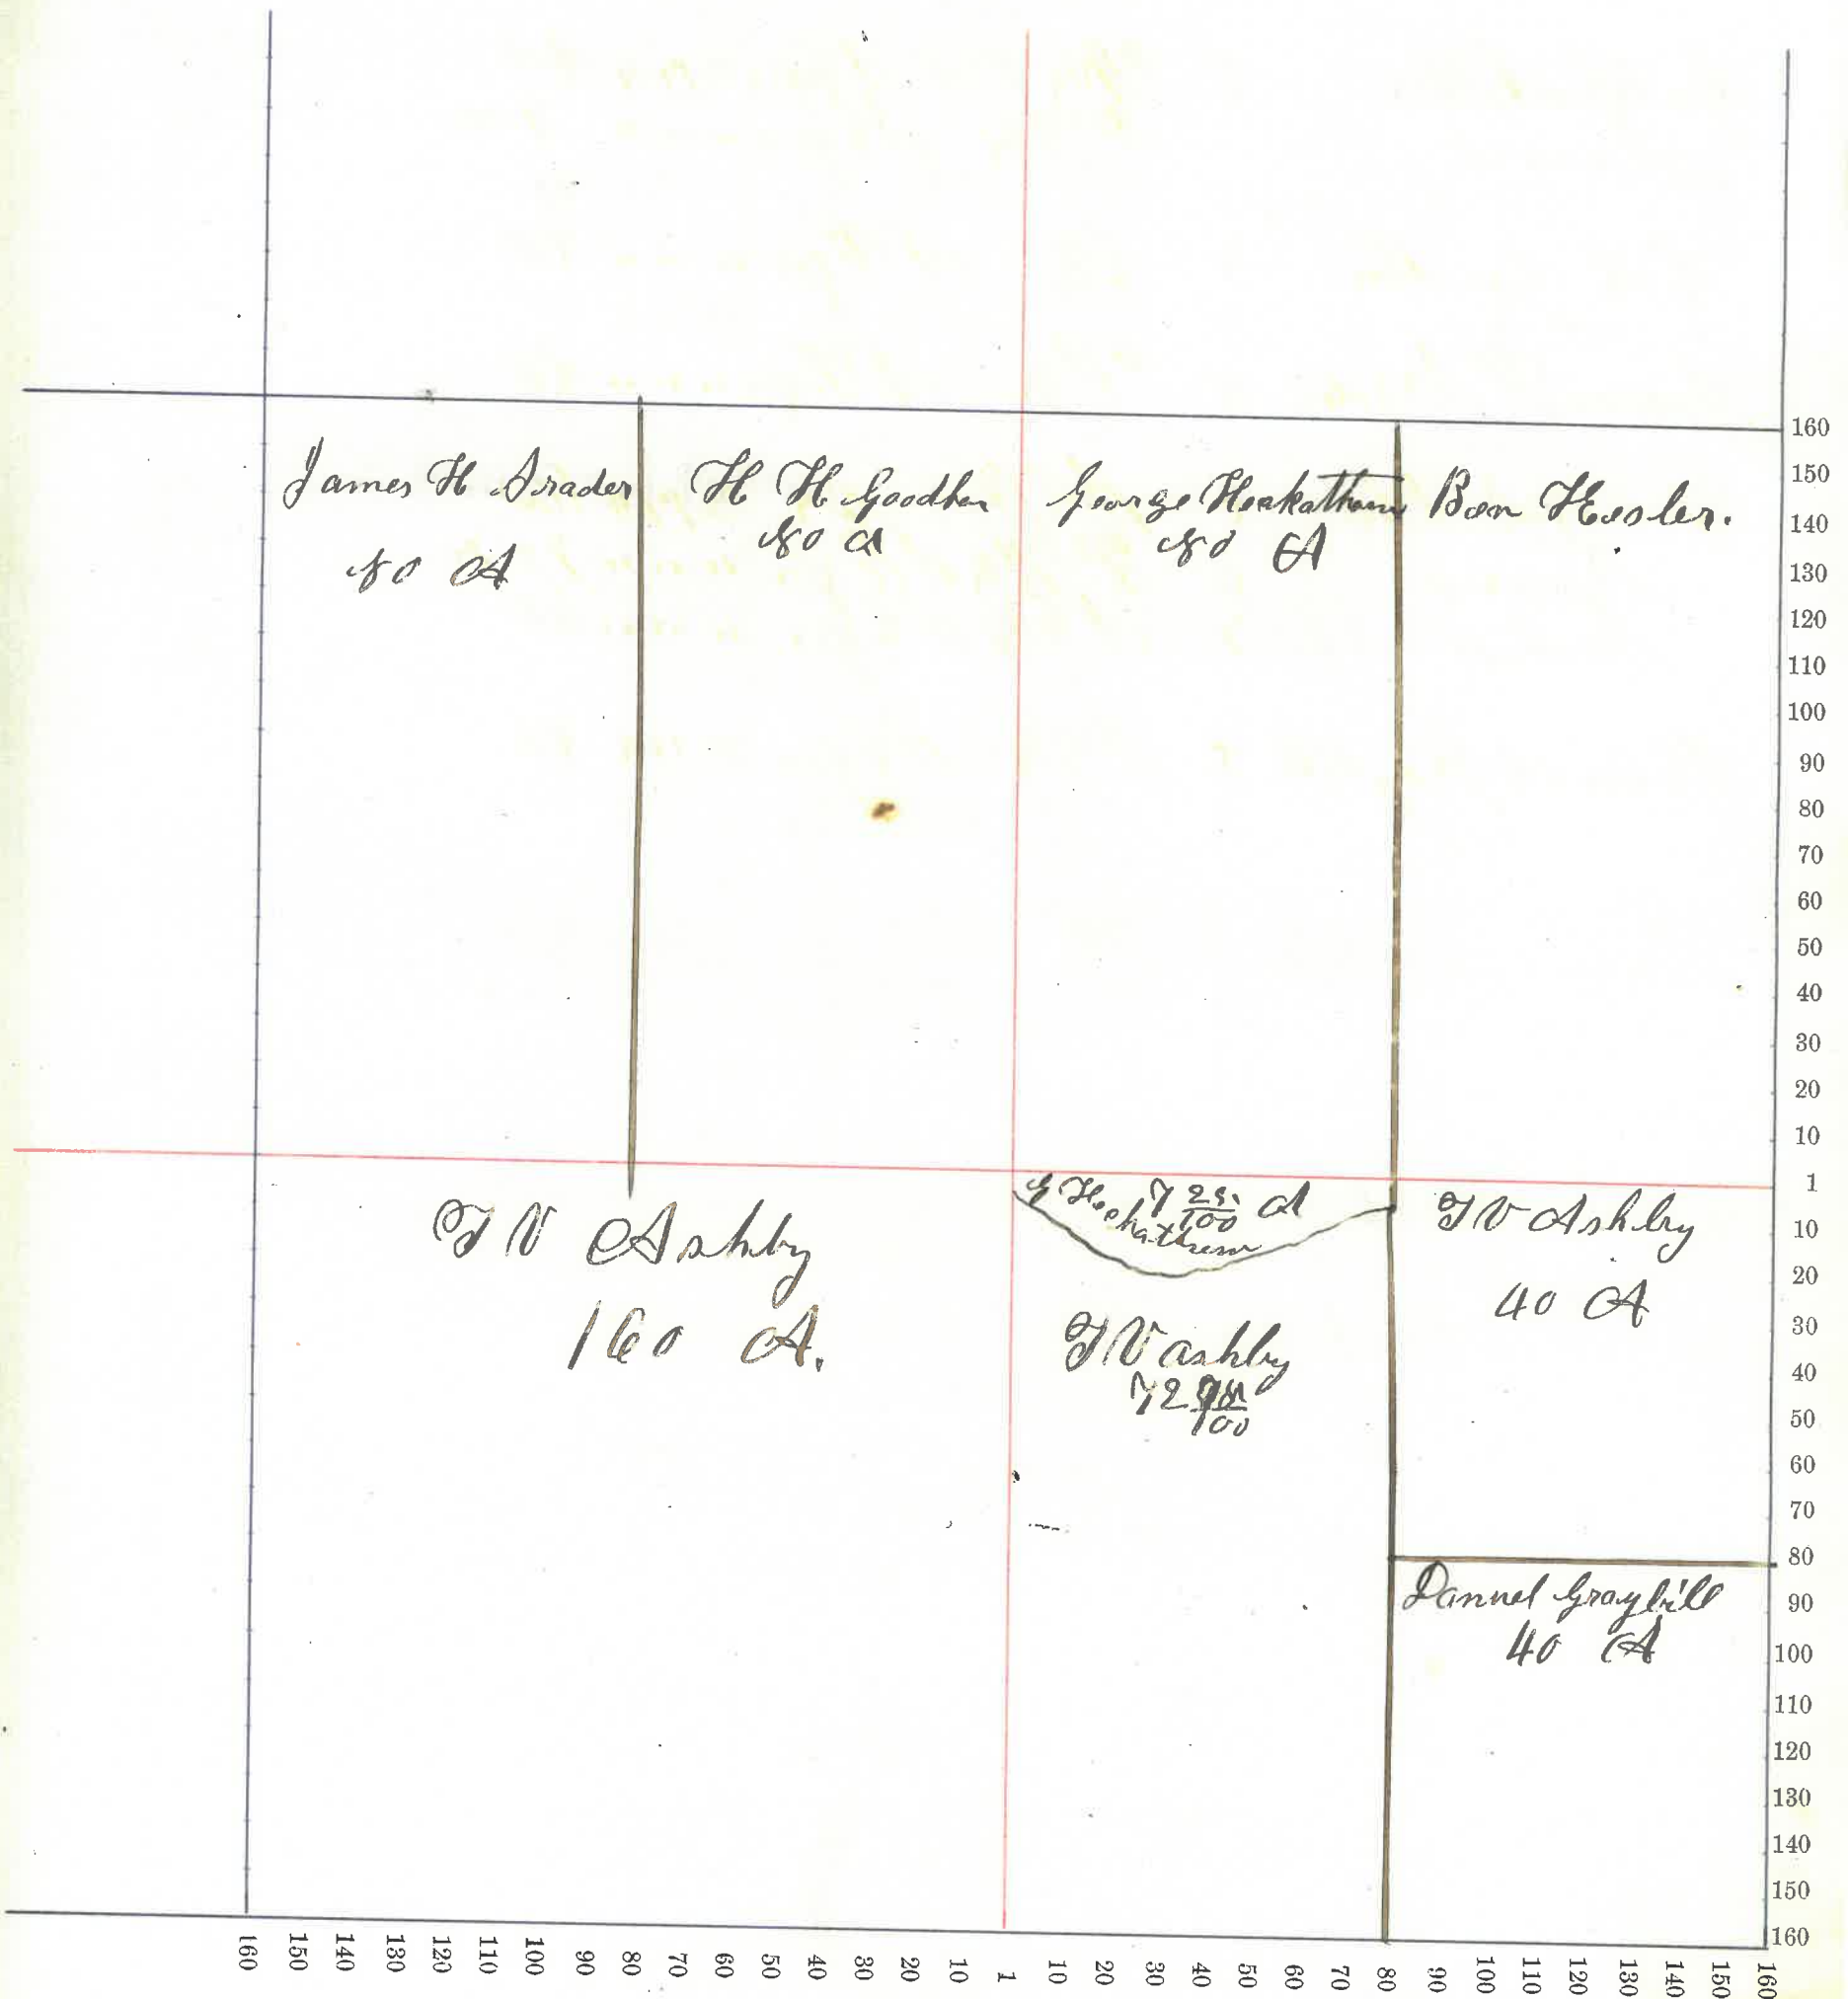 James H Srader
80 A
H H Goodhen
80 A
George Heckathorn
80 A
Ben Hesler.
T V Ashby
160 A.
G Heckathorn
7 25/100 A
T V Ashby
72 75/100
T V Ashby
40 A
Dannel Graybill
40 A
160
150
140
130
120
110
100
90
80
70
60
50
40
30
20
10
1
10
20
30
40
50
60
70
80
90
100
110
120
130
140
150
160
160 150 140 130 120 110 100 90 80 70 60 50 40 30 20 10 1 10 20 30 40 50 60 70 80 90 100 110 120 130 140 150 160